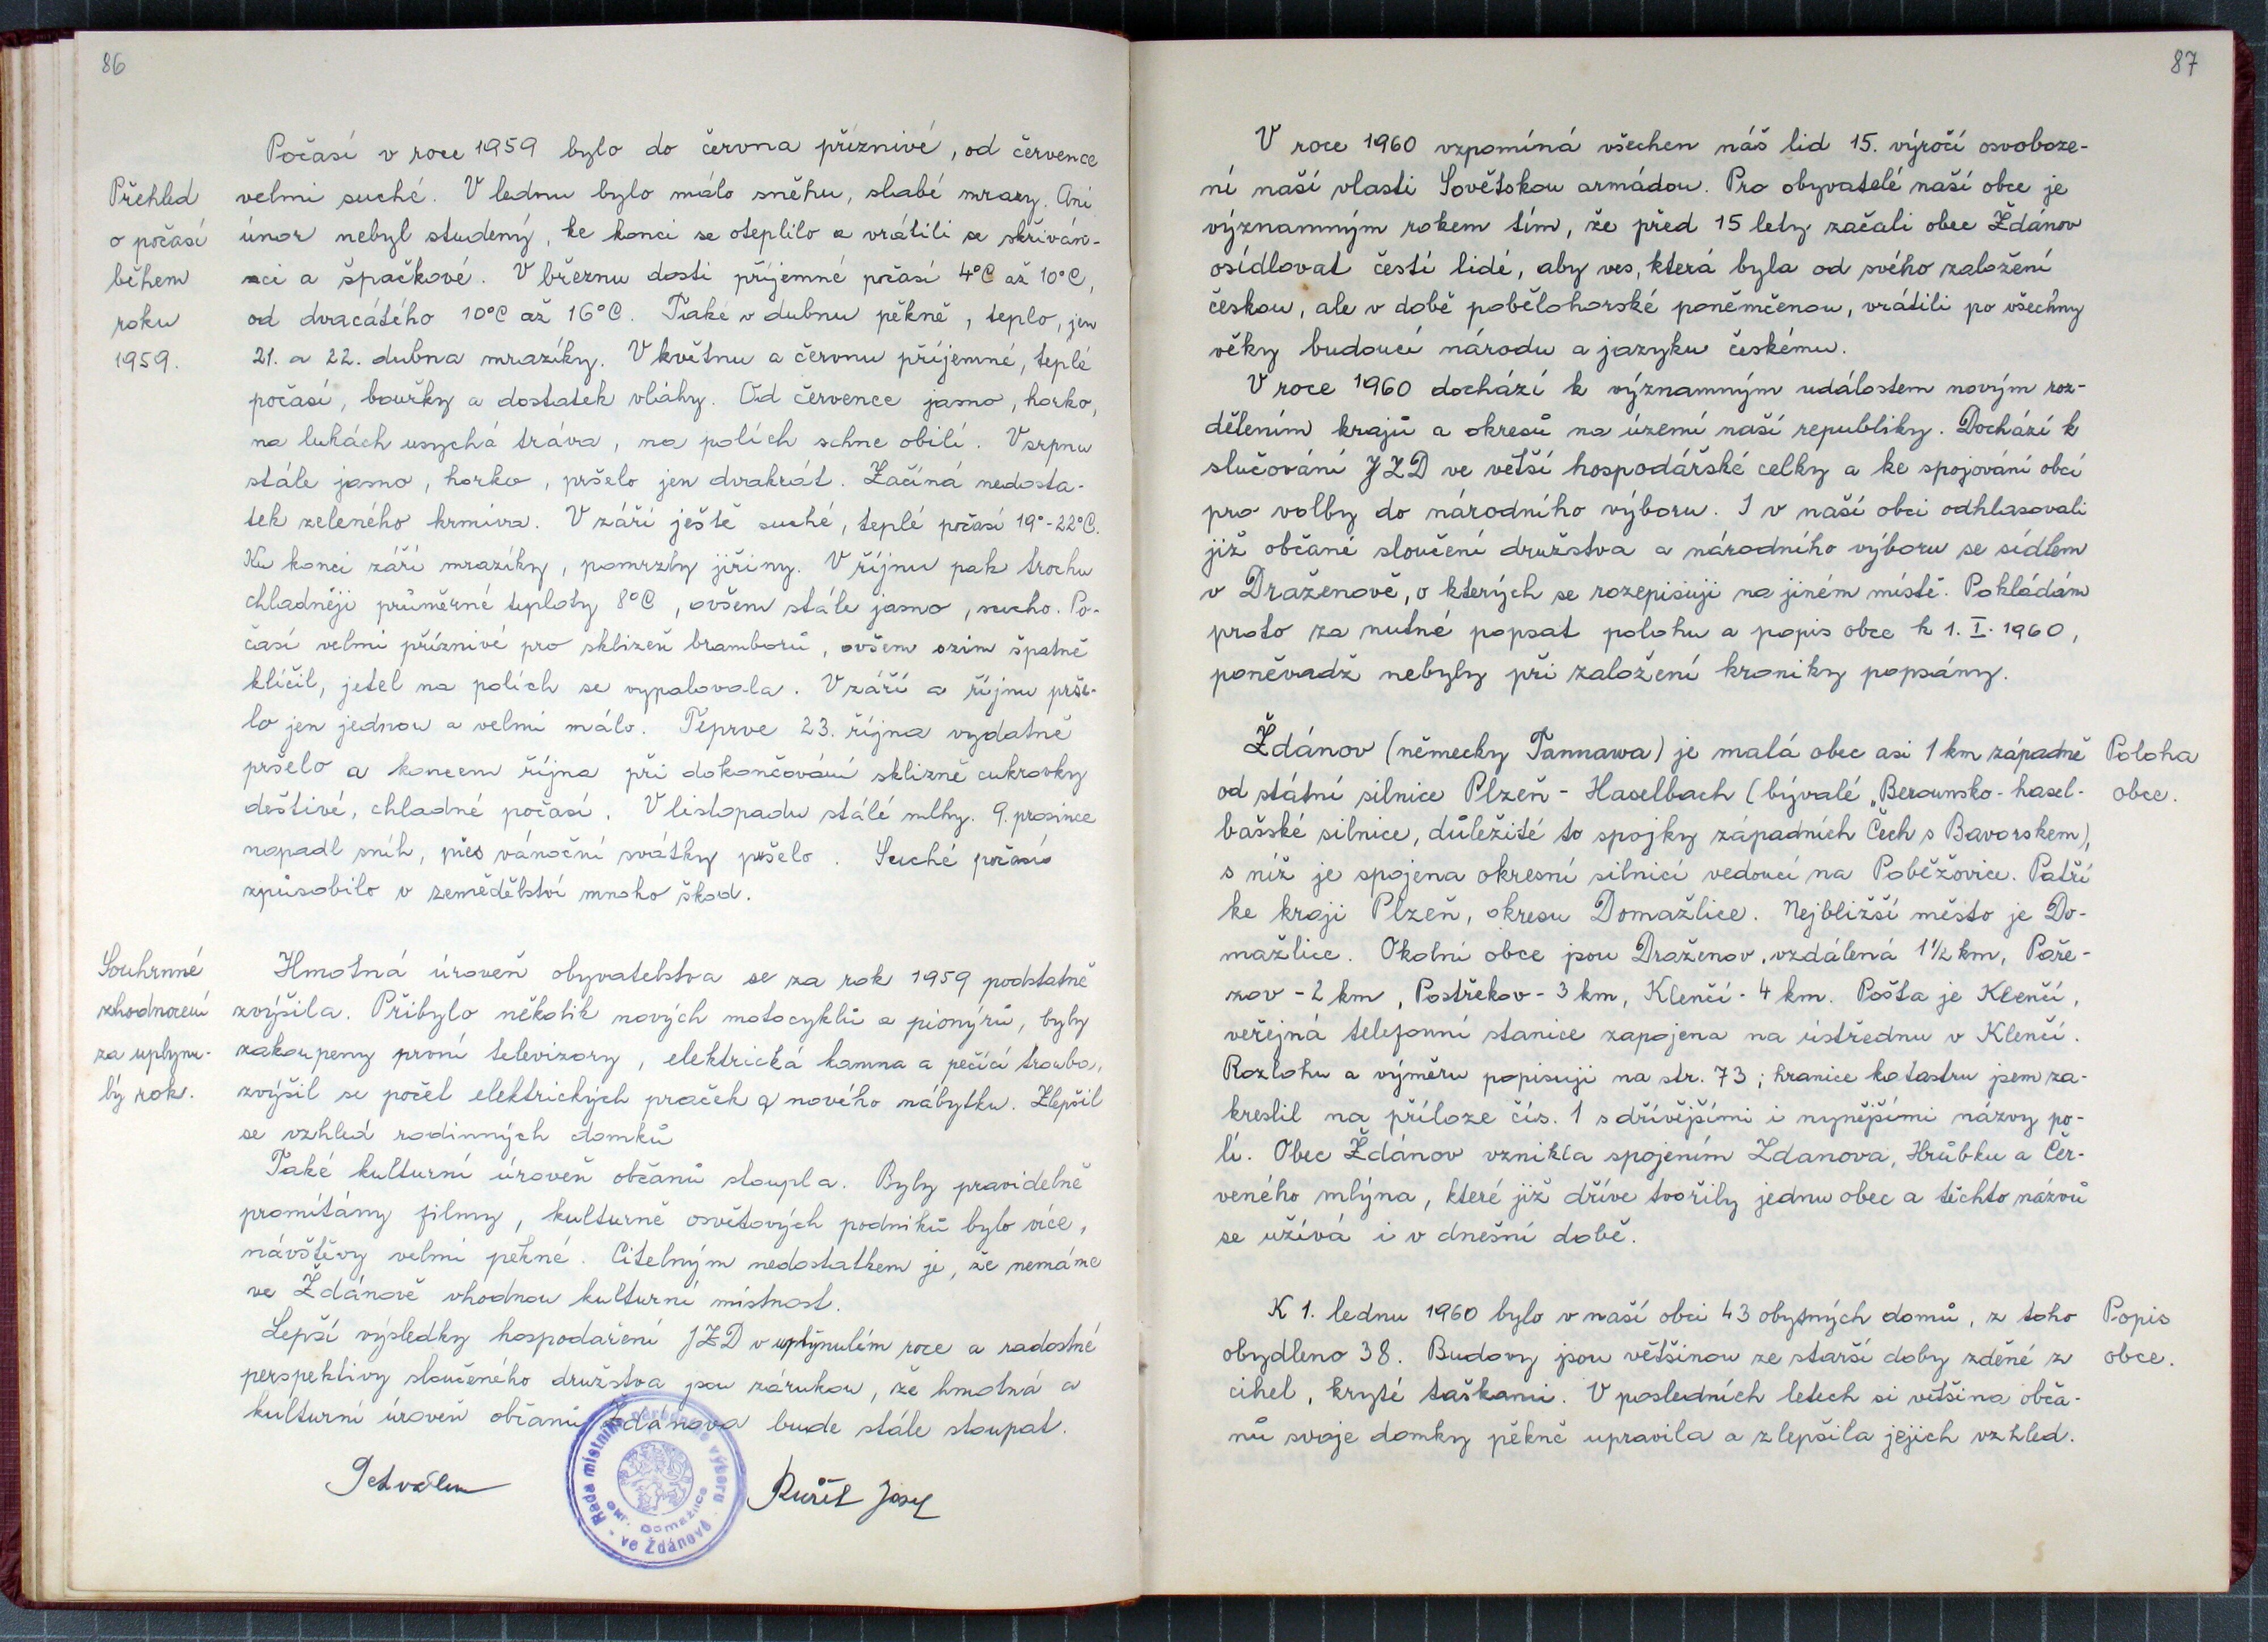 86
Přehled
o počasí
během
roku
1959.
Počasí v roce 1959 bylo do června příznivé, od července
velmi suché. V lednu bylo málo sněhu, slabé mrazy. Ani
únor nebyl studený, ke konci se oteplilo a vrátili se skřiván-
ci a špačkové. V březnu dosti příjemné počasí 4°C až 10°C,
od dvacátého 10°C až 16°C. Také v dubnu pěkně, teplo, jen
21. a 22. dubna mrazíky. V květnu a červnu příjemné, teplé
počasí, bouřky a dostatek vláhy. Od července jasno, horko,
na lukách usychá tráva, na polích schne obilí. V srpnu
stále jasno, horko, pršelo jen dvakrát. Začíná nedosta-
tek zeleného krmiva. V září ještě suché, teplé počasí 19°-22°C.
Ku konci září mrazíky, pomrzly jiřiny. V říjnu pak trochu
chladněji průměrné teploty 8°C, ovšem stále jasno, sucho. Po-
časí velmi příznivé pro sklizeň bramborů, ovšem ozim špatně
klíčil, jetel na polích se vypalovala. V září a říjnu prše-
lo jen jednou a velmi málo. Teprve 23. října vydatně
pršelo a koncem října při dokončování sklizně cukrovky
deštivé, chladné počasí. V listopadu stálé mlhy. 9. prosince
napadl sníh, přes vánoční svátky pršelo. Suché počasí
způsobilo v zemědělství mnoho škod.
Souhrnné
zhodnocení
za uplynu-
lý rok.
Hmotná úroveň obyvatelstva se za rok 1959 podstatně
zvýšila. Přibylo několik nových motocyklů a pionýrů, byly
zakoupeny první televizory, elektrická kamna a pečící trouba,
zvýšil se počet elektrických praček a nového nábytku. Zlepšil
se vzhled rodinných domků
Také kulturní úroveň občanů stoupla. Byly pravidelně
promítány filmy, kulturně osvětových podniků bylo více,
návštěvy velmi pěkné. Citelným nedostatkem je, že nemáme
ve Ždánově vhodnou kulturní místnost.
Lepší výsledky hospodaření JZD v uplynulém roce a radostné
perspektivy sloučeného družstva jsou zárukou, že hmotná a
kulturní úroveň občanů Ždánova bude stále stoupat.
Rada místního národního výboru
okr. Domažlice
- ve Ždánově -
Josef
87
V roce 1960 vzpomíná všechen náš lid 15. výročí osvoboze-
ní naší vlasti Sovětskou armádou. Pro obyvatelé naší obce je
významným rokem tím, že před 15 lety začali obec Ždánov
osídlovat čestí lidé, aby ves, která byla od svého založení
českou, ale v době pobělohorské poněmčenou, vrátili po všechny
věky budoucí národu a jazyku českému.
V roce 1960 dochází k významným událostem novým roz-
dělením krajů a okresů na území naší republiky. Dochází k
slučování JZD ve větší hospodářské celky a ke spojování obcí
pro volby do národního výboru. I v naší obci odhlasovali
již občané sloučení družstva a národního výboru se sídlem
v Draženově, o kterých se rozepisuji na jiném místě. Pokládám
proto za nutné popsat polohu a popis obce k 1. I. 1960,
poněvadž nebyly při založení kroniky popsány.
Poloha
obce.
Ždánov (německy Tannawa) je malá obec asi 1 km západně
od státní silnice Plzeň - Haselbach (bývalé „Berounsko-hasel-
bašské silnice, důležité to spojky západních Čech s Bavorskem),
s níž je spojena okresní silnicí vedoucí na Poběžovice. Patří
ke kraji Plzeň, okresu Domažlice. Nejbližší město je Do-
mažlice. Okolní obce jsou Draženov, vzdálená 1½ km, Paře-
zov - 2 km, Postřekov - 3 km, Klenčí - 4 km. Pošta je Klenčí,
veřejná telefonní stanice zapojena na ústřednu v Klenčí.
Rozlohu a výměru popisuji na str. 73; hranice katastru jsem za-
kreslil na příloze čís. 1 s dřívějšími i nynějšími názvy po-
lí. Obec Ždánov vznikla spojením Zdanova, Hrůbku a Čer-
veného mlýna, které již dříve tvořily jednu obec a těchto názvů
se užívá i v dnešní době.
Popis
obce.
K 1. lednu 1960 bylo v naší obci 43 obytných domů, z toho
obydleno 38. Budovy jsou většinou ze starší doby zděné z
cihel, kryté taškami. V posledních letech si většina obča-
nů svoje domky pěkně upravila a zlepšila jejich vzhled.